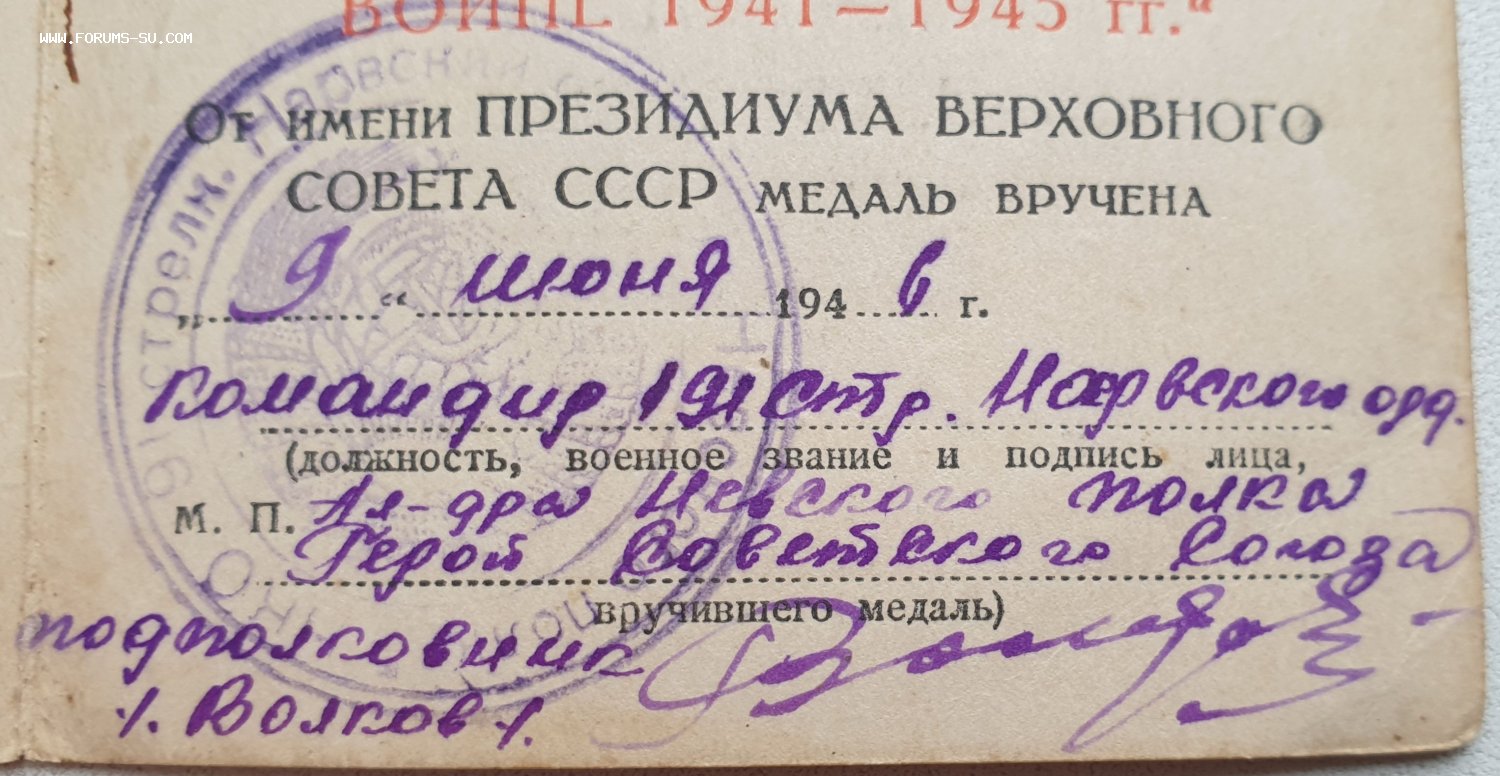 WWW.FORUMS-SU.COM
ВОЙНЕ 1941—1945 гг.“
От имени ПРЕЗИДИУМА ВЕРХОВНОГО
СОВЕТА СССР МЕДАЛЬ ВРУЧЕНА
„ 9 “ июня 1946 г.
Командир 191 стр. Нарвского орд.
(должность, военное звание и подпись лица,
М. П. Ал-дра Невского полка
Герой Советского Союза
вручившего медаль)
подполковник
/. Волков /.
91 Стрелк. Нарвский